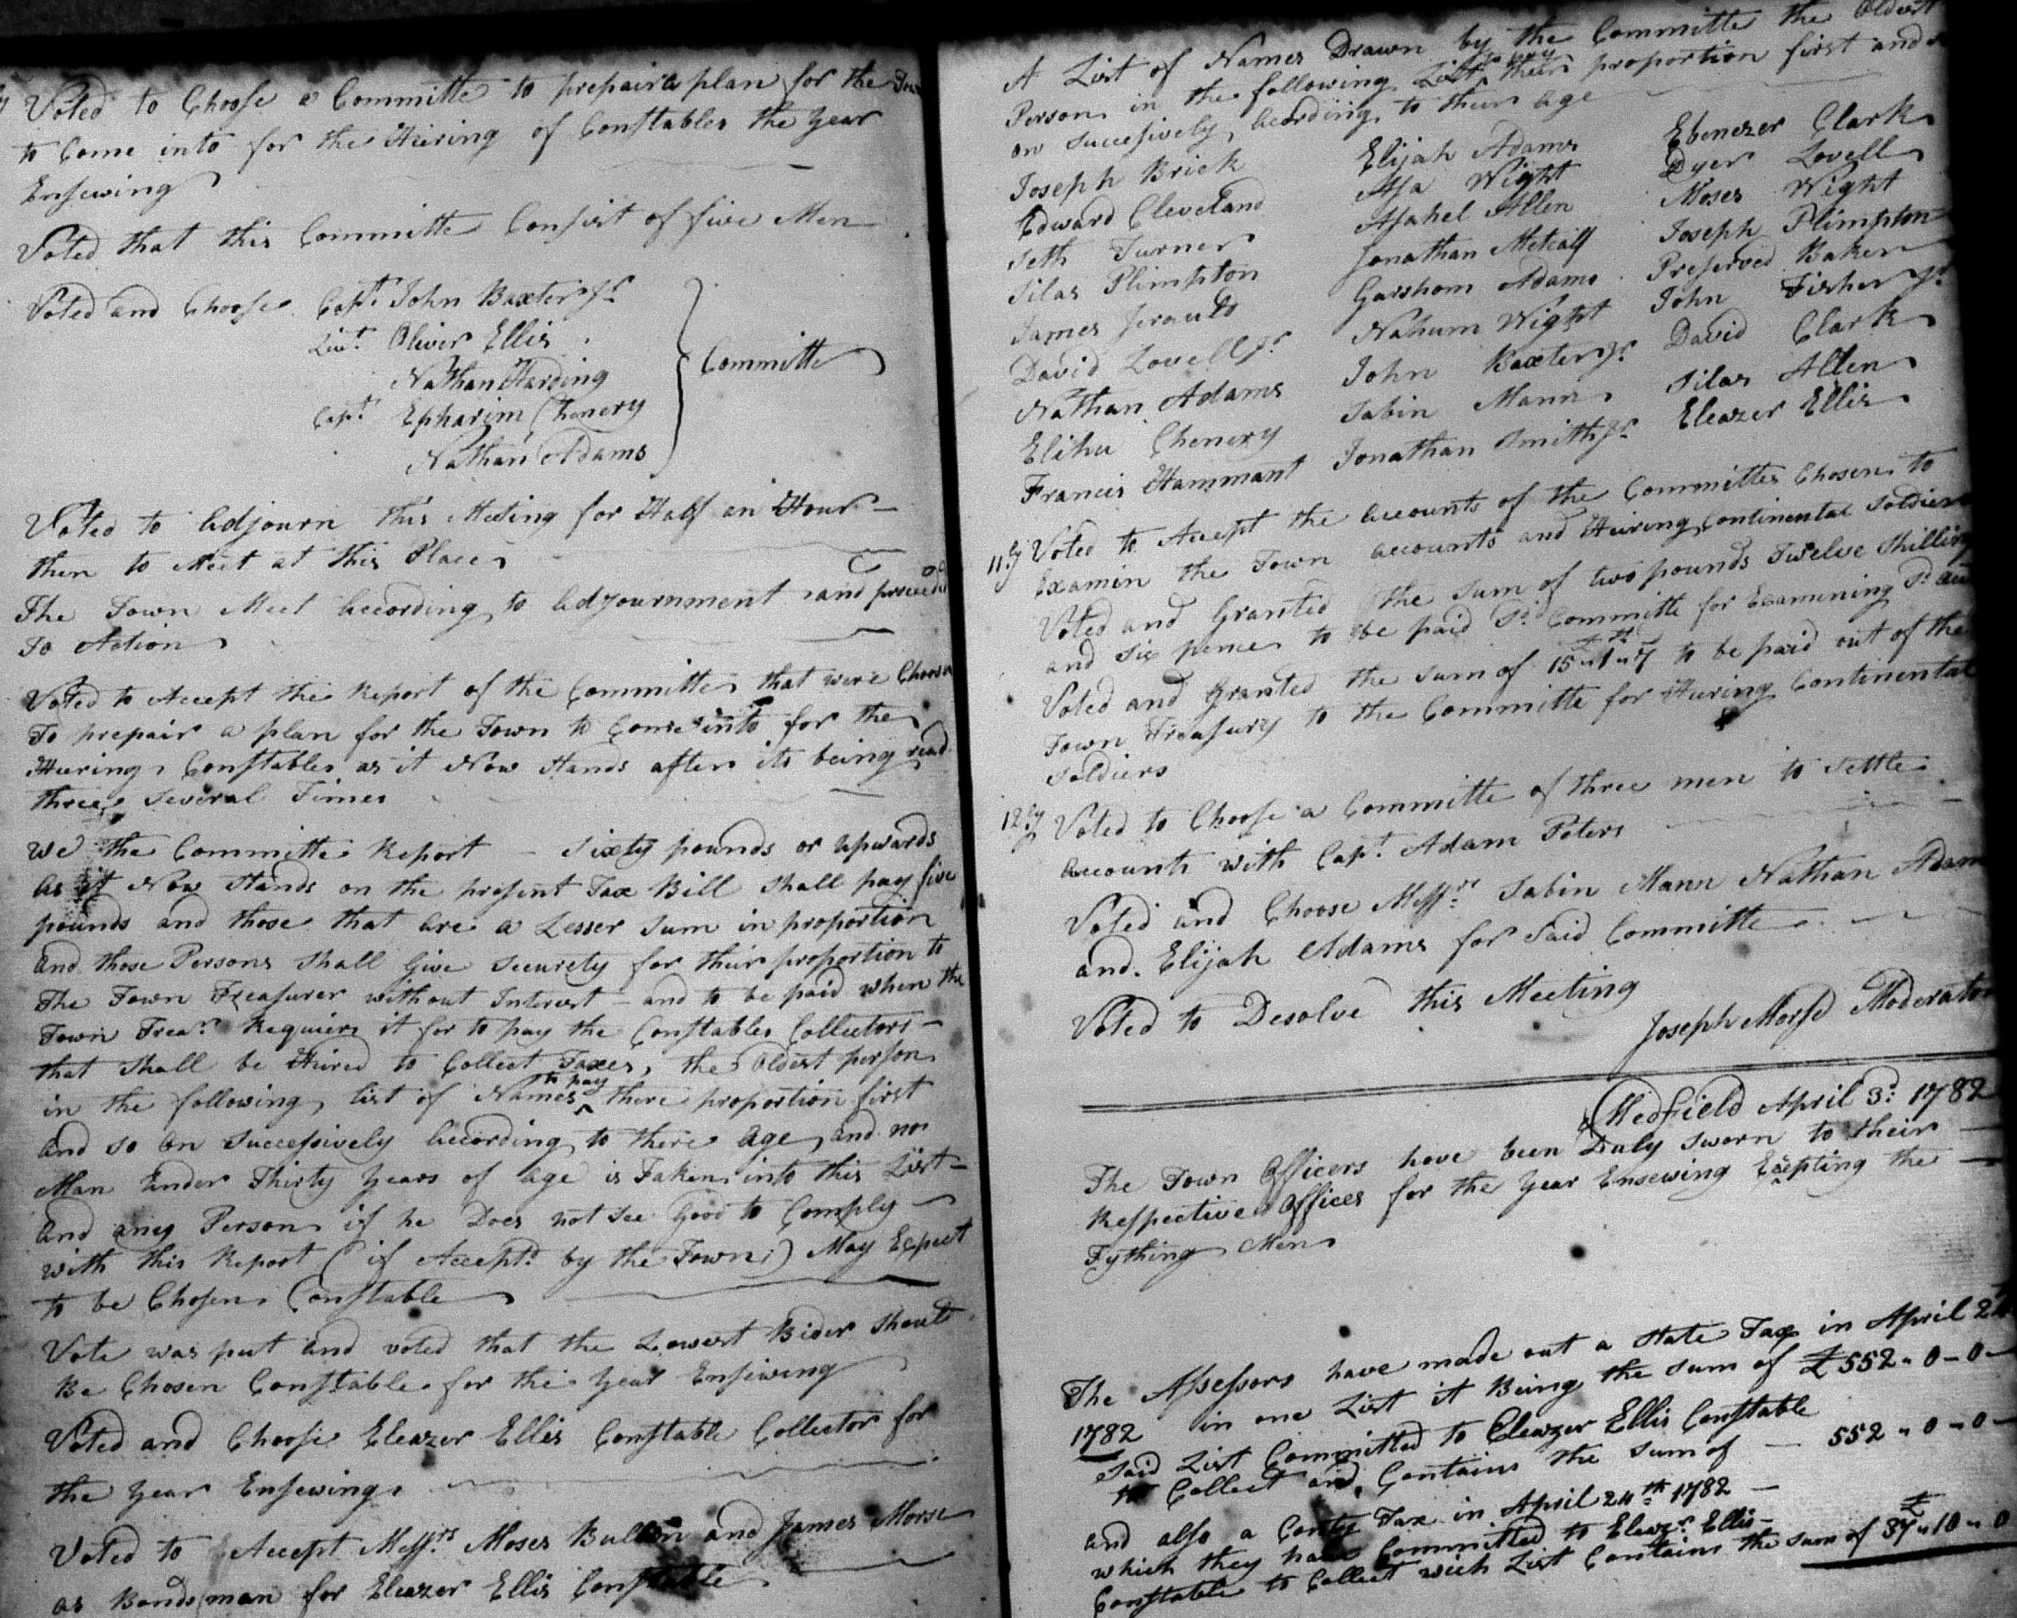 Voted to Choose a Committe to prepair a plan for the Town
to Come into for the Hiering of Constables the Year
Ensewing
Voted that this Committe Consist of five Men
Voted and Choose Capt. John Baxter Jr
Liut. Oliver Ellis
Nathan Harding
Capt. Epharim Chenery
Nathan Adams
Committe
Voted to Adjourn this Meeting for Half an Hour
then to Meet at this Place
The Town Meet according to Adjournment and proceeded
To Action
Voted to Accept the Report of the Committe that were Choosen
To prepair a plan for the Town to Come into for the
Hiering Constables as it Now Stands after its being read
three Several Times
We the Committe Report - Sixty pounds or upwards
as it Now Stands on the present Tax Bill Shall pay five
pounds and those that are a Lesser Sum in proportion
and those Persons Shall Give Security for their proportion to
The Town Treasurer without Interest - and to be paid when the
Town Trear. Requiers it for to pay the Constables Collectors -
that Shall be Hired to Collect Taxes, the Oldest person
in the following list of Names to pay there proportion first
and so on Successively according to there age, and no
Man under Thirty Years of age is Taken into this List -
and any Person if he Does not See Good to Comply
with this Report (if Acceptd. by the Town) May Expect
to be Chosen Constable
Vote was put and voted that the Lowest Bider Should
Be Chosen Constable for the Year Ensewing
Voted and Choose Eleazer Ellis Constable Collector for
the Year Ensewing
Voted to Accept Messrs. Moses Bullen and James Morse
as Bondsman for Eleazer Ellis Constable
A List of Names Drawn by the Committe the Oldest
Person in the following List to pay their proportion first and so
on Successively according to their age
Joseph Brick Elijah Adams Ebenezer Clark
Edward Cleveland Asa Wight Dyer Lovell
Seth Turner Asahel Allen Moses Wight
Silas Plimpton Jonathan Metcalf Joseph Plimpton
James Jerauld Garshom Adams Preserved Baker
David Lovell Jr. Nahum Wight John Fisher Jr
Nathan Adams John Baxter Jr. David Clark
Elihu Chenery Sabin Mann Silas Allen
Francis Hammant Jonathan Smith Jr. Eleazer Ellis
11ly Voted to Accept the accounts of the Committes Chosen to
Examin the Town accounts and Hiering Continental Soldiers
Voted and Granted the Sum of two pounds Twelve Shilling
and Six pence to be paid Sd. Committe for Examining Sd. acc
Voted and Granted the Sum of 15 " 1 " 7 to be paid out of the
Town Treasury to the Committe for Hiering Continental
Soldiers
12ly Voted to Choose a Committe of three men to Settle
accounts with Capt. Adam Peters
Voted and Choose Messrs. Sabin Mann Nathan Adams
and Elijah Adams for Said Committe
Voted to Desolve this Meeting
Joseph Morse Moderator
Medfield April 3: 1782
The Town Officers have been Duly Sworn to their
Respective Offices for the Year Ensewing Excepting the
Tything Men
The Assessors have made out a State Tax in April 24
1782 in one List it Being the Sum of £552 " 0 - 0 -
Said List Committed to Eleazer Ellis Constable
to Collect and Contains the Sum of - 552 " 0 - 0 -
and also a Conty Tax in April 24th 1782 -
which they have Committed to Eleazr. Ellis -
Constable to Collect wich List Contains the Sum of £37 " 10 " 0